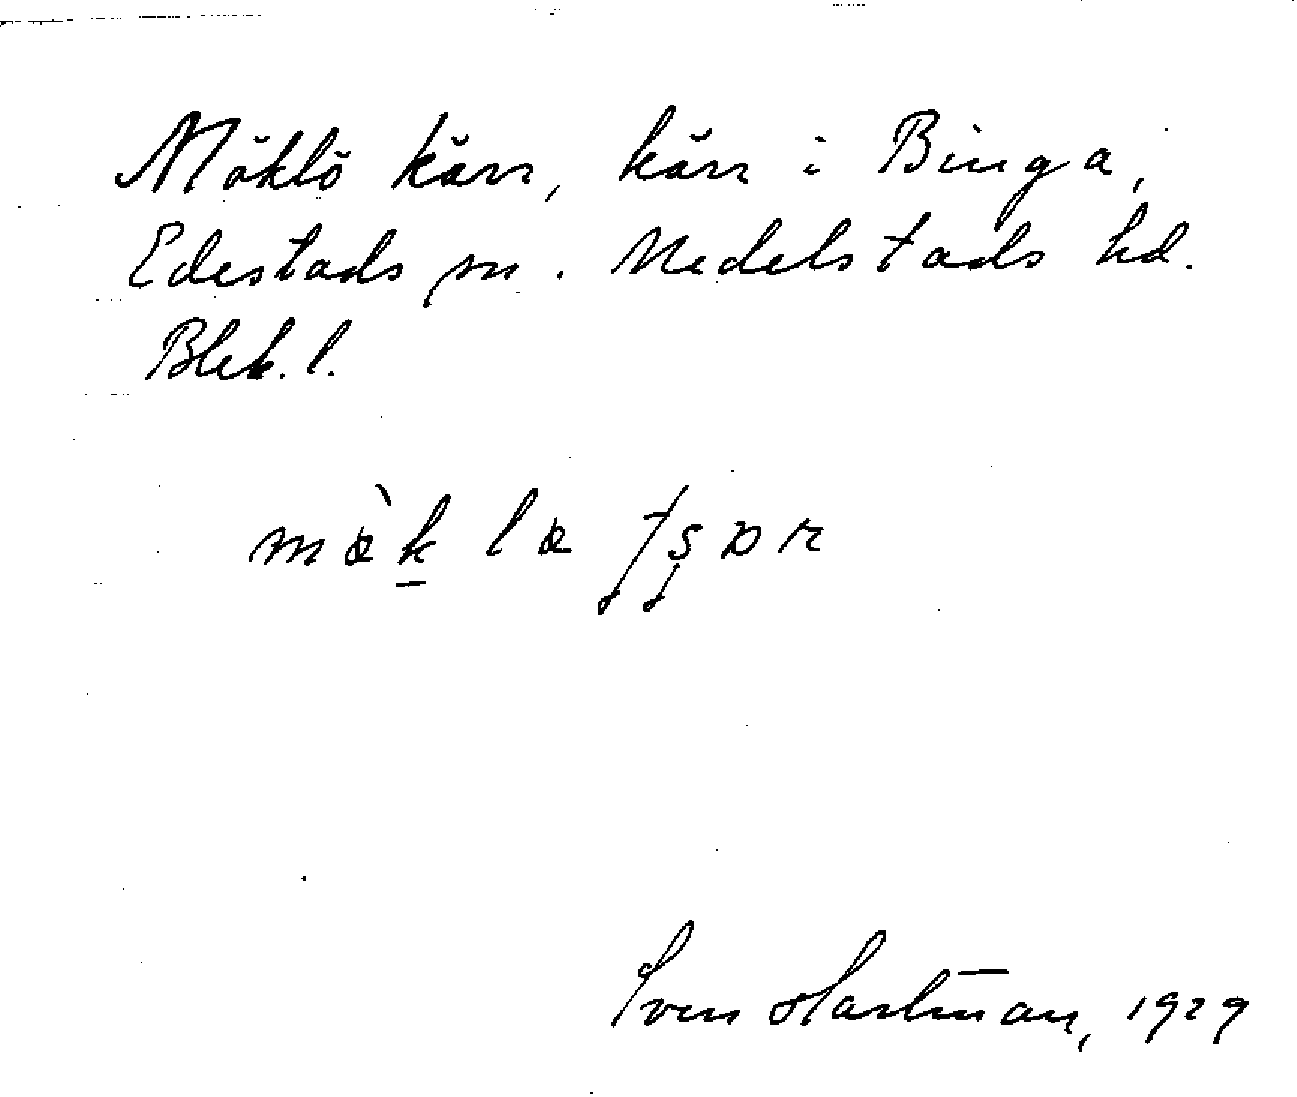 Möklö kärr, kärr i Binga,
Edestads sn. Medelstads hd.
Blek. l.
Sven Hartman, 1929